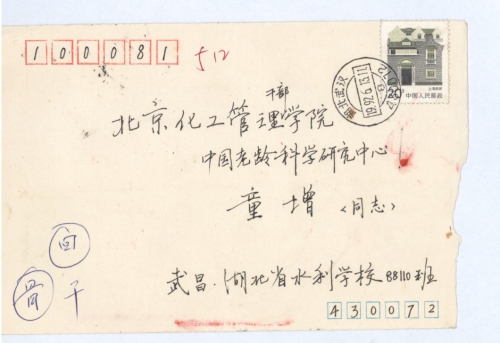 100081
512
干部
北京化工管理学院
中国老龄科学研究中心
童增〈同志〉
回
骨干
武昌.湖北省水利学校88110班
430072
湖北武汉
1992.6.15.11
20
中国人民邮政